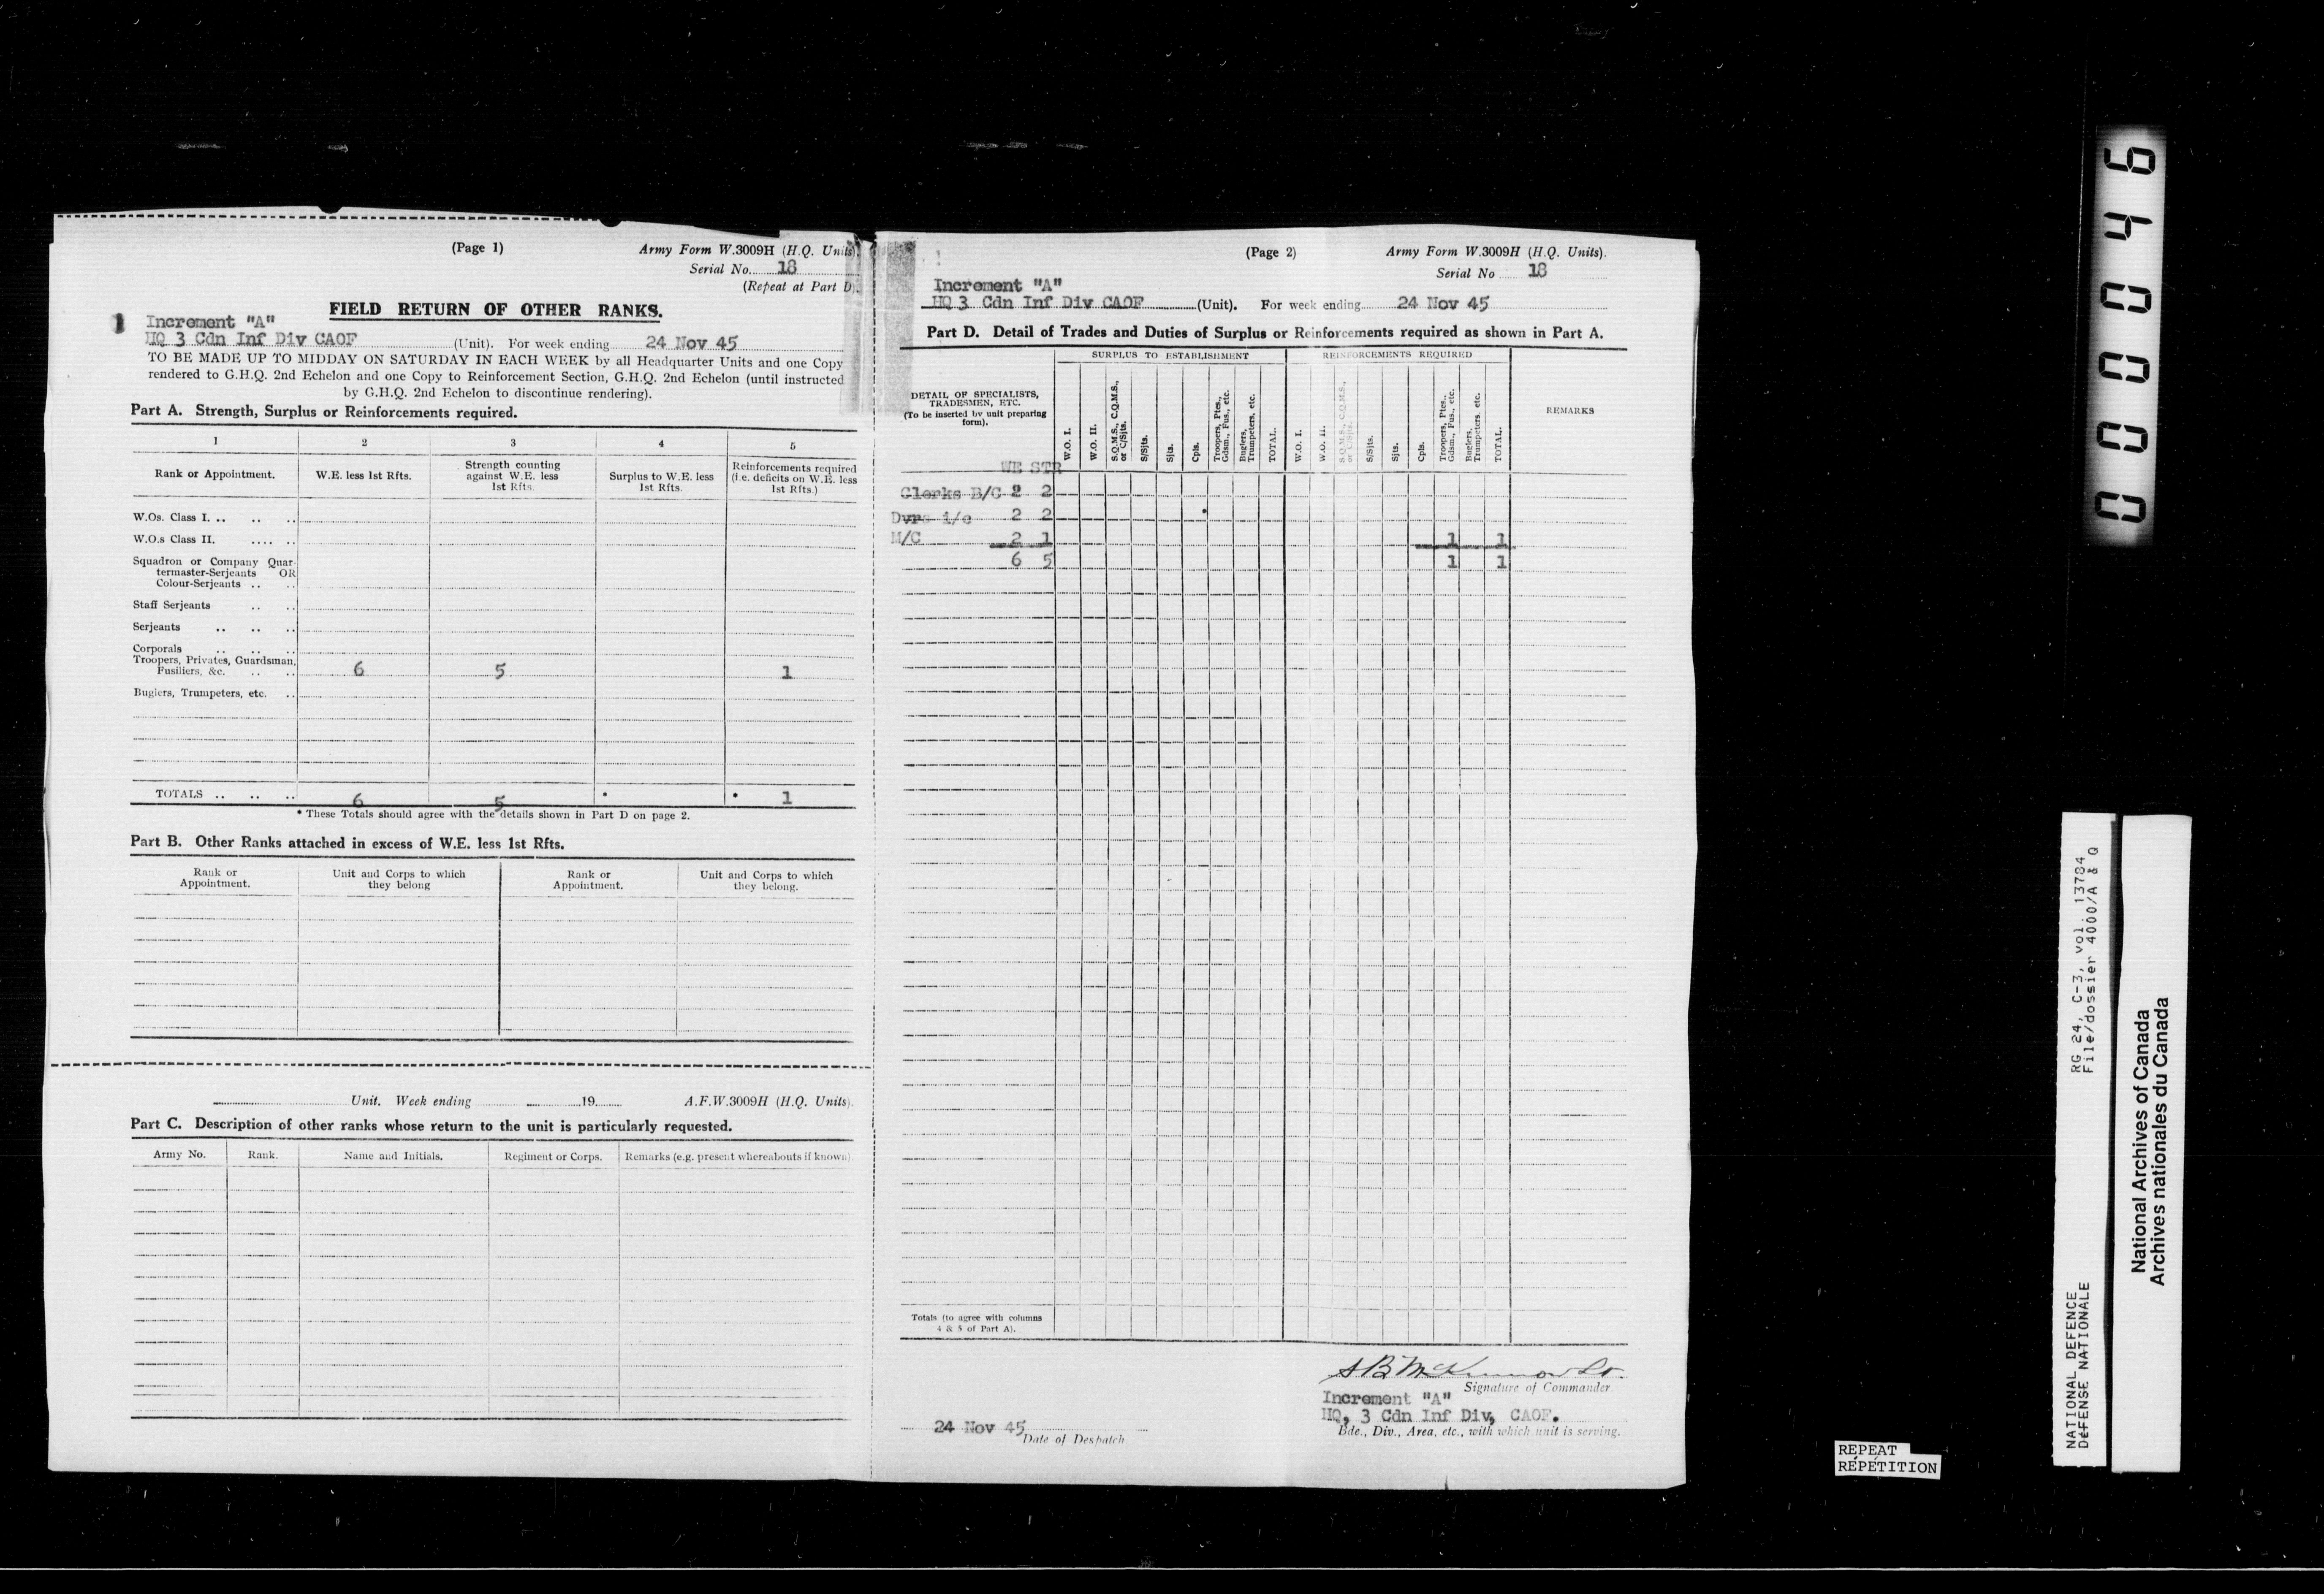 (Page 1)
Army Form W.3009H (H.Q. Units).
Serial No. 18
(Repeat at Part D).
FIELD RETURN OF OTHER RANKS.
1 Increment "A"
HQ 3 Cdn Inf Div CAOF (Unit). For week ending 24 Nov 45
TO BE MADE UP TO MIDDAY ON SATURDAY IN EACH WEEK by all Headquarter Units and one Copy
rendered to G.H.Q. 2nd Echelon and one Copy to Reinforcement Section, G.H.Q. 2nd Echelon (until instructed
by G.H.Q. 2nd Echelon to discontinue rendering).
Part A. Strength, Surplus or Reinforcements required.
1 2 3 4 5
Rank or Appointment. W.E. less 1st Rfts. Strength counting against W.E. less 1st Rfts. Surplus to W.E. less 1st Rfts. Reinforcements required (i.e. deficits on W.E. less 1st Rfts.)
W.Os. Class I. .. .. ..
W.O.s Class II. .... ..
Squadron or Company Quar-
termaster-Serjeants OR
Colour-Serjeants .. ..
Staff Serjeants .. ..
Serjeants .. .. ..
Corporals .. .. ..
Troopers, Privates, Guardsman,
Fusiliers, &c. .. .. 6 5 1
Buglers, Trumpeters, etc. ..
TOTALS .. .. .. 6 5 * * 1
* These Totals should agree with the details shown in Part D on page 2.
Part B. Other Ranks attached in excess of W.E. less 1st Rfts.
Rank or Appointment. Unit and Corps to which they belong Rank or Appointment. Unit and Corps to which they belong.
Unit. Week ending 19 A.F.W.3009H (H.Q. Units).
Part C. Description of other ranks whose return to the unit is particularly requested.
Army No. Rank. Name and Initials. Regiment or Corps. Remarks (e.g. present whereabouts if known).
(Page 2)
Army Form W.3009H (H.Q. Units).
Serial No 18
Increment "A"
HQ 3 Cdn Inf Div CAOF (Unit). For week ending 24 Nov 45
Part D. Detail of Trades and Duties of Surplus or Reinforcements required as shown in Part A.
SURPLUS TO ESTABLISHMENT REINFORCEMENTS REQUIRED
DETAIL OF SPECIALISTS,
TRADESMEN, ETC.
(To be inserted by unit preparing
form).
W.O. I. W.O. II. S.Q.M.S., C.Q.M.S., or C/Sjts. S/Sjts. Sjts. Cpls. Troopers, Ptes., Gdsm., Fus., etc. Buglers, Trumpeters, etc. TOTAL. W.O. I. W.O. II. S.Q.M.S., C.Q.M.S., or C/Sjts. S/Sjts. Sjts. Cpls. Troopers, Ptes., Gdsm., Fus., etc. Buglers, Trumpeters, etc. TOTAL. REMARKS
WE STR
Clerks B/C 2 2
Dvrs i/c 2 2
M/C 2 1 1 1
6 5 1 1
Totals (to agree with columns
4 & 5 of Part A).
Signature of Commander
Increment "A"
HQ, 3 Cdn Inf Div, CAOF.
Bde., Div., Area, etc., with which unit is serving.
24 Nov 45
Date of Despatch
000046
RG 24, C-3, vol. 13784
File/dossier 4000/A & Q
NATIONAL DEFENCE
DÉFENSE NATIONALE
National Archives of Canada
Archives nationales du Canada
REPEAT
RÉPÉTITION